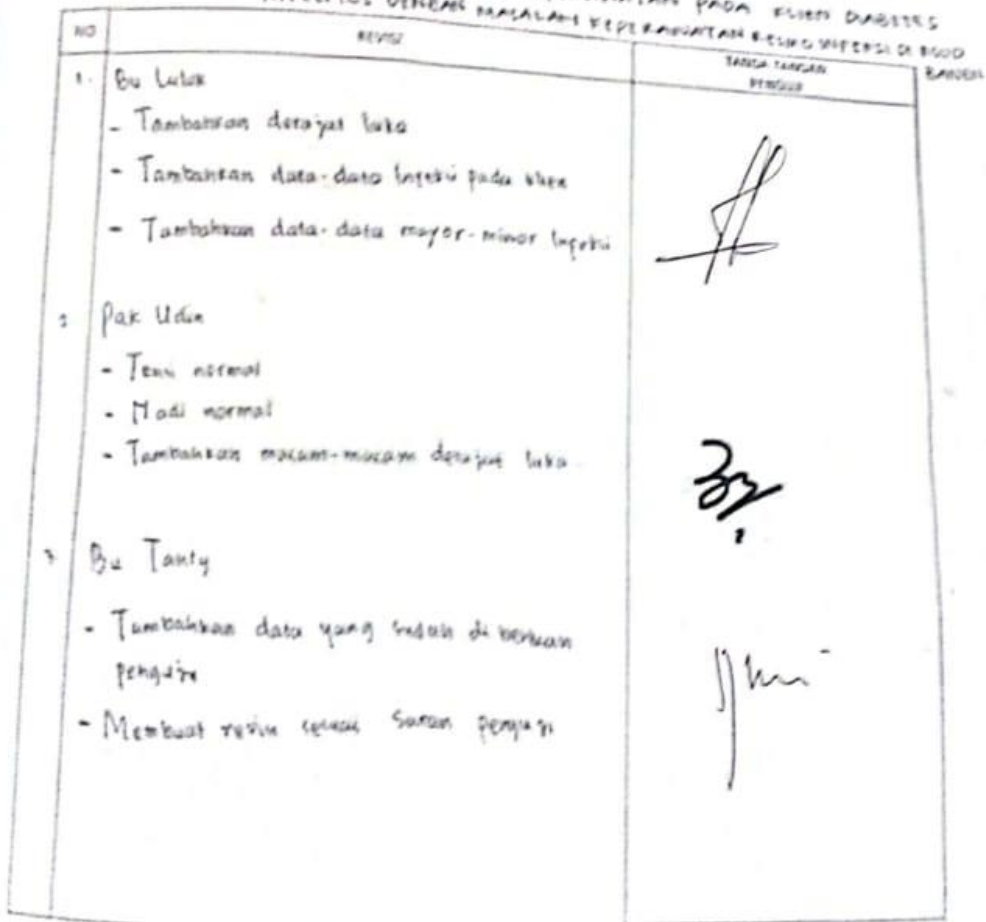 PADA KLIEN DIABETES
DENGAN MASALAH KEPERAWATAN RESIKO INFEKSI DI RSUD
BANGIL
NO REVISI TANDA TANGAN
PENGUJI
1. Bu Luluk
- Tambahkan derajat luka
- Tambahkan data-data Infeksi pada klien
- Tambahkan data-data mayor-minor Infeksi
2 Pak Udin
- Tensi normal
- Nadi normal
- Tambahkan macam-macam derajat luka
3. Bu Tanty
- Tambahkan data yang sudah di berikan
penguji
- Membuat revisi sesuai Saran penguji